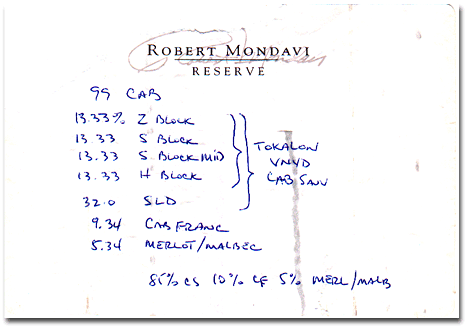 ROBERT MONDAVI
RESERVE
99 CAB
13.33% Z BLOCK
13.33 S BLOCK
13.33 S BLOCK MID
13.33 H BLOCK
TOKALON
VNYD
CAB SAUV
32.0 SLD
9.34 CAB FRANC
5.34 MERLOT/MALBEC
85% CS 10% CF 5% MERL/MALB